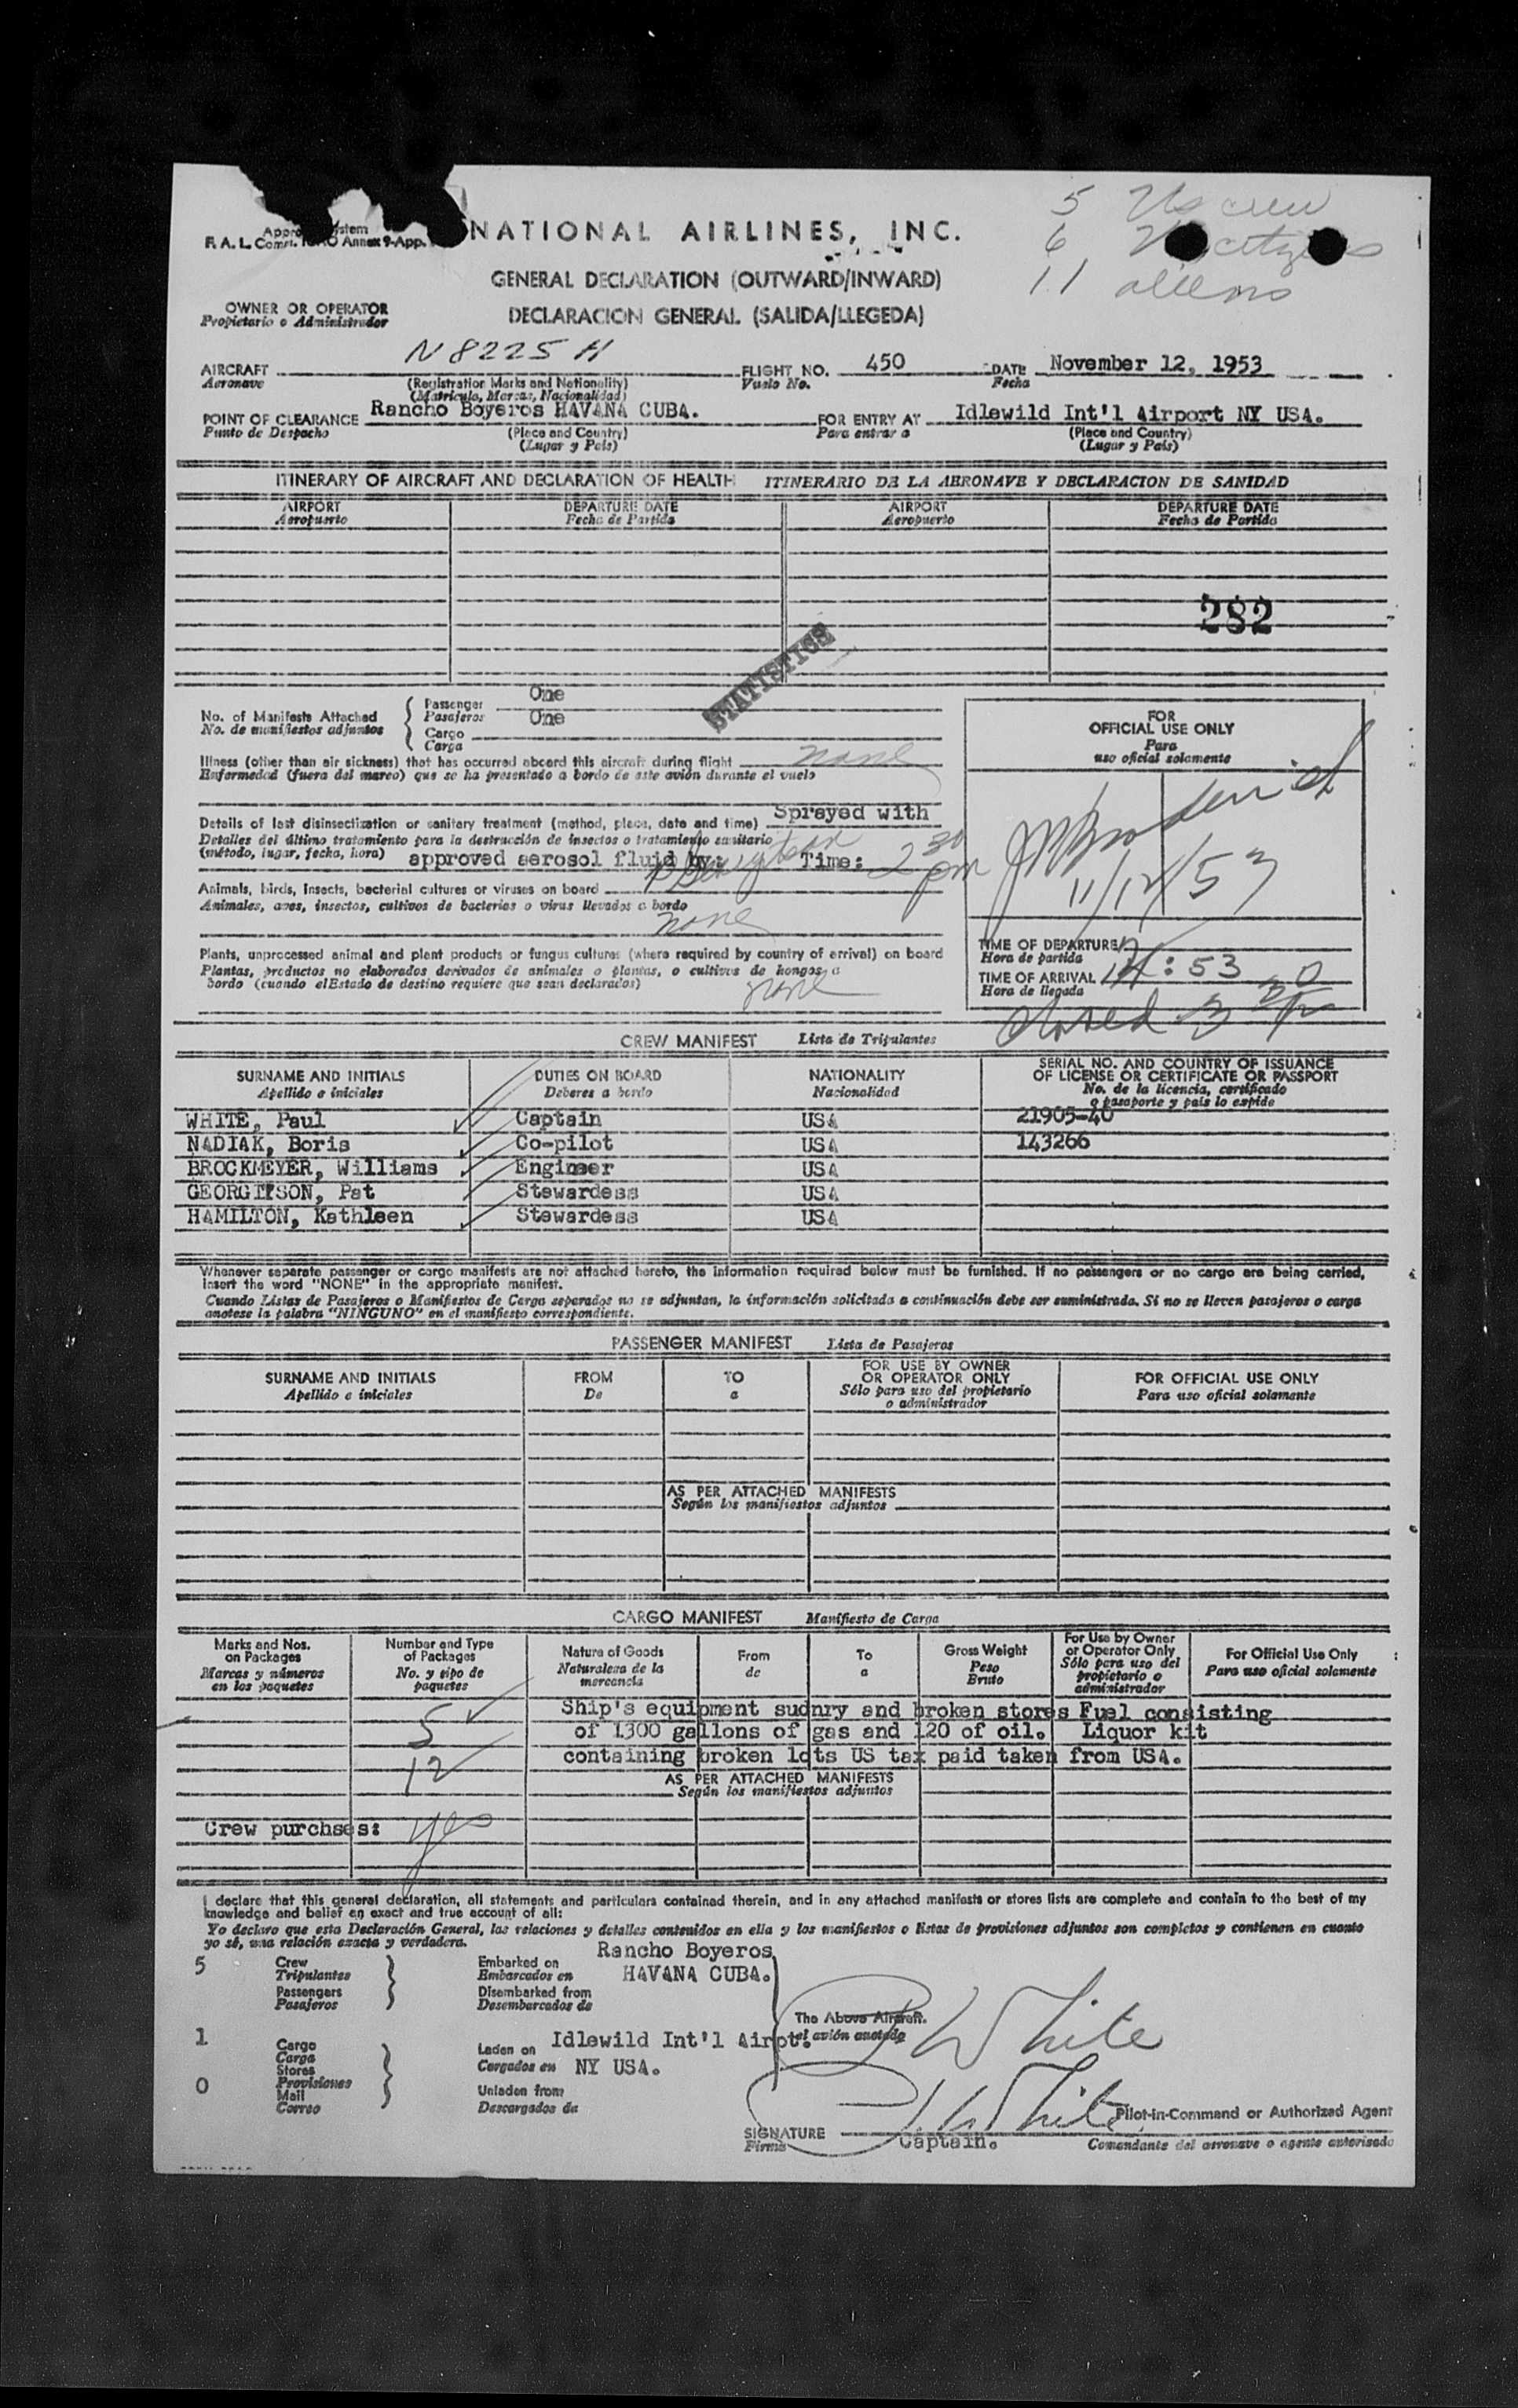 5 US crew
NATIONAL AIRLINES, INC.
F. A. L. Annex 9-App.
6
11 aliens
GENERAL DECLARATION (OUTWARD/INWARD)
DECLARACION GENERAL (SALIDA/LLEGEDA)
OWNER OR OPERATOR
Propietario o Administrador
N8225H
AIRCRAFT FLIGHT NO. 450 DATE November 12, 1953
Aeronave (Registration Marks and Nationality) Vuelo No. Fecha
(Matricula, Marcas, Nacionalidad)
POINT OF CLEARANCE Rancho Boyeros HAVANA CUBA. FOR ENTRY AT Idlewild Int'l Airport NY USA.
Punto de Despacho (Place and Country) Para entrar a (Place and Country)
(Lugar y Pais) (Lugar y Pais)
ITINERARY OF AIRCRAFT AND DECLARATION OF HEALTH ITINERARIO DE LA AERONAVE Y DECLARACION DE SANIDAD
AIRPORT DEPARTURE DATE AIRPORT DEPARTURE DATE
Aeropuerto Fecha de Partida Aeropuerto Fecha de Partida
282
STATISTICS
No. of Manifests Attached Passenger One
No. de manifiestos adjuntos Pasajeros One
Cargo
Carga
Illness (other than air sickness) that has occurred aboard this aircraft during flight none
Enfermedad (fuera del mareo) que se ha presentado a bordo de este avión durante el vuelo
Details of last disinsectization or sanitary treatment (method, place, date and time) Sprayed with
Detalles del último tratamiento para la destrucción de insectos o tratamiento sanitario
(método, lugar, fecha, hora) approved aerosol fluid by: Time: 2 30 pm
Animals, birds, insects, bacterial cultures or viruses on board
Animales, aves, insectos, cultivos de bacterias o virus llevados a bordo
none
Plants, unprocessed animal and plant products or fungus cultures (where required by country of arrival) on board
Plantas, productos no elaborados derivados de animales o plantas, o cultivos de hongos a
bordo (cuando el Estado de destino requiere que sean declarados) none
FOR
OFFICIAL USE ONLY
Para
uso oficial solamente
11/12/53
TIME OF DEPARTURE
Hora de partida
TIME OF ARRIVAL : 53
Hora de llegada
CREW MANIFEST Lista de Tripulantes
SURNAME AND INITIALS DUTIES ON BOARD NATIONALITY SERIAL NO. AND COUNTRY OF ISSUANCE
OF LICENSE OR CERTIFICATE OR PASSPORT
Apellido e iniciales Deberes a bordo Nacionalidad No. de la licencia, certificado
o pasaporte y país lo expide
WHITE, Paul Captain USA 21905-40
NADIAK, Boris Co-pilot USA 143266
BROCKMEYER, Williams Engineer USA
GEORGITSON, Pat Stewardess USA
HAMILTON, Kathleen Stewardess USA
Whenever separate passenger or cargo manifests are not attached hereto, the information required below must be furnished. If no passengers or no cargo are being carried,
insert the word "NONE" in the appropriate manifest.
Cuando Listas de Pasajeros o Manifiestos de Carga separados no se adjuntan, la información solicitada a continuación debe ser suministrada. Si no se lleven pasajeros o carga
anotese la palabra "NINGUNO" en el manifiesto correspondiente.
PASSENGER MANIFEST Lista de Pasajeros
SURNAME AND INITIALS FROM TO FOR USE BY OWNER OR OPERATOR ONLY FOR OFFICIAL USE ONLY
Apellido e iniciales De a Sólo para uso del propietario o administrador Para uso oficial solamente
AS PER ATTACHED MANIFESTS
Según los manifiestos adjuntos
CARGO MANIFEST Manifiesto de Carga
Marks and Nos. on Packages Number and Type of Packages Nature of Goods From To Gross Weight For Use by Owner or Operator Only For Official Use Only
Marcas y números en los paquetes No. y tipo de paquetes Naturaleza de la mercancia de a Peso Bruto Sólo para uso del propietario o administrador Para uso oficial solamente
5 Ship's equipment sudnry and broken stores Fuel consisting
of 1300 gallons of gas and 120 of oil. Liquor kit
12 containing broken lots US tax paid taken from USA.
AS PER ATTACHED MANIFESTS
Según los manifiestos adjuntos
Crew purchses: yes
I declare that this general declaration, all statements and particulars contained therein, and in any attached manifests or stores lists are complete and contain to the best of my
knowledge and belief an exact and true account of all:
Yo declaro que esta Declaración General, las relaciones y detalles contenidos en ella y los manifiestos o listas de provisiones adjuntos son completos y contienen en cuanto
yo sé, una relación exacta y verdadera.
Rancho Boyeros
5 Crew Embarked on
Tripulantes Embarcados en HAVANA CUBA.
Passengers Disembarked from
Pasajeros Desembarcados de
The Above Aircraft.
el avión anotado
P White
1 Cargo Laden on Idlewild Int'l Airpt.
Carga Cargados en NY USA.
Stores
0 Provisiones Unladen from
Mail
Correo Descargados de
P White
Pilot-in-Command or Authorized Agent
SIGNATURE Captain.
Firma Comandante del aeronave o agente autorizado